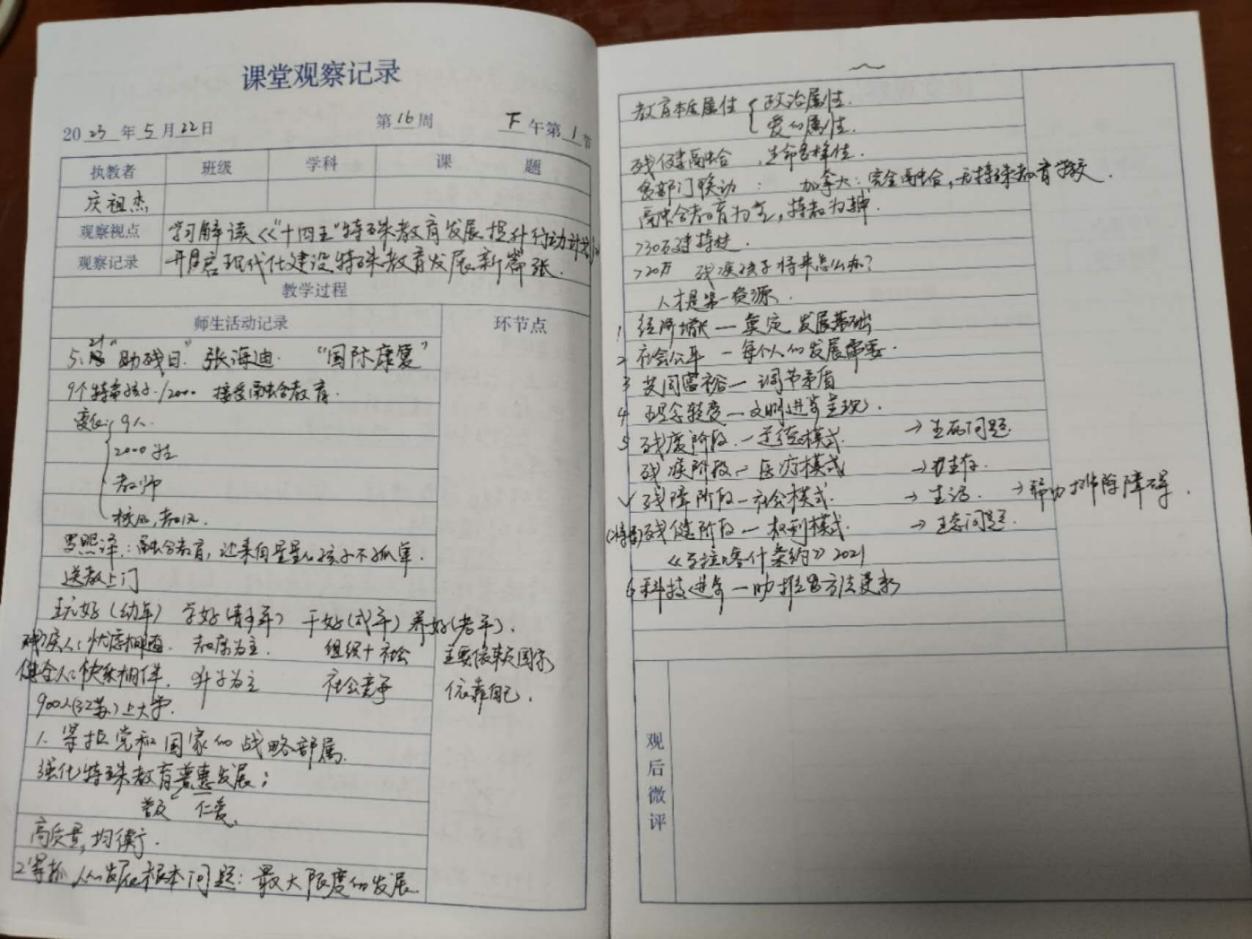 课堂观察记录
2023年5月22日 第16周 下午第1节
执教者 班级 学科 课题
庆祖杰
观察视点 学习解读《"十四五"特殊教育发展提升行动计划》
观察记录 开启现代化建设特殊教育发展新篇张.
教学过程
师生活动记录 环节点
5.21"助残日" 张海迪. "国际康复"
9个特需孩子/2000 接受融合教育.
变化 9人.
2000 生
老师
校风,教风.
融合教育,让来自星星的孩子不孤单.
送教上门
玩好(幼年) 学好(青年) 干好(成年) 养好(老年).
残疾人: 教康为主. 组织+社会 主要依靠国家
健全人:快乐相伴. 升学为主 社会竞争 依靠自己.
900人(江苏)上大学.
1. 党和国家的战略部属.
强化特殊教育普惠发展;
普及 仁爱.
高质量,均衡.
2. 人的发展根本问题:最大限度的发展.
教育本质属性 政治属性.
爱的属性.
残健融合,生命多样性.
多部门联动: 加拿大:完全融合,无特殊教育学校.
融合教育为主,特教为辅.
>30万建特校.
>20万 残疾孩子将来怎么办?
人才是第一资源.
1 经济增长—奠定发展基础
2 社会公平—每个人的发展需要.
3 共同富裕—调节矛盾
4 理念转变—文明进步呈现.
5 残废阶段.—道德模式. →生死问题.
残疾阶段—医疗模式 →生存.
√残障阶段—社会模式. →生活. →帮助排除障碍.
(特需)残健阶段—权利模式. →生态问题.
《马拉喀什条约》2021
6 科技进步—助推方法更新
观后微评